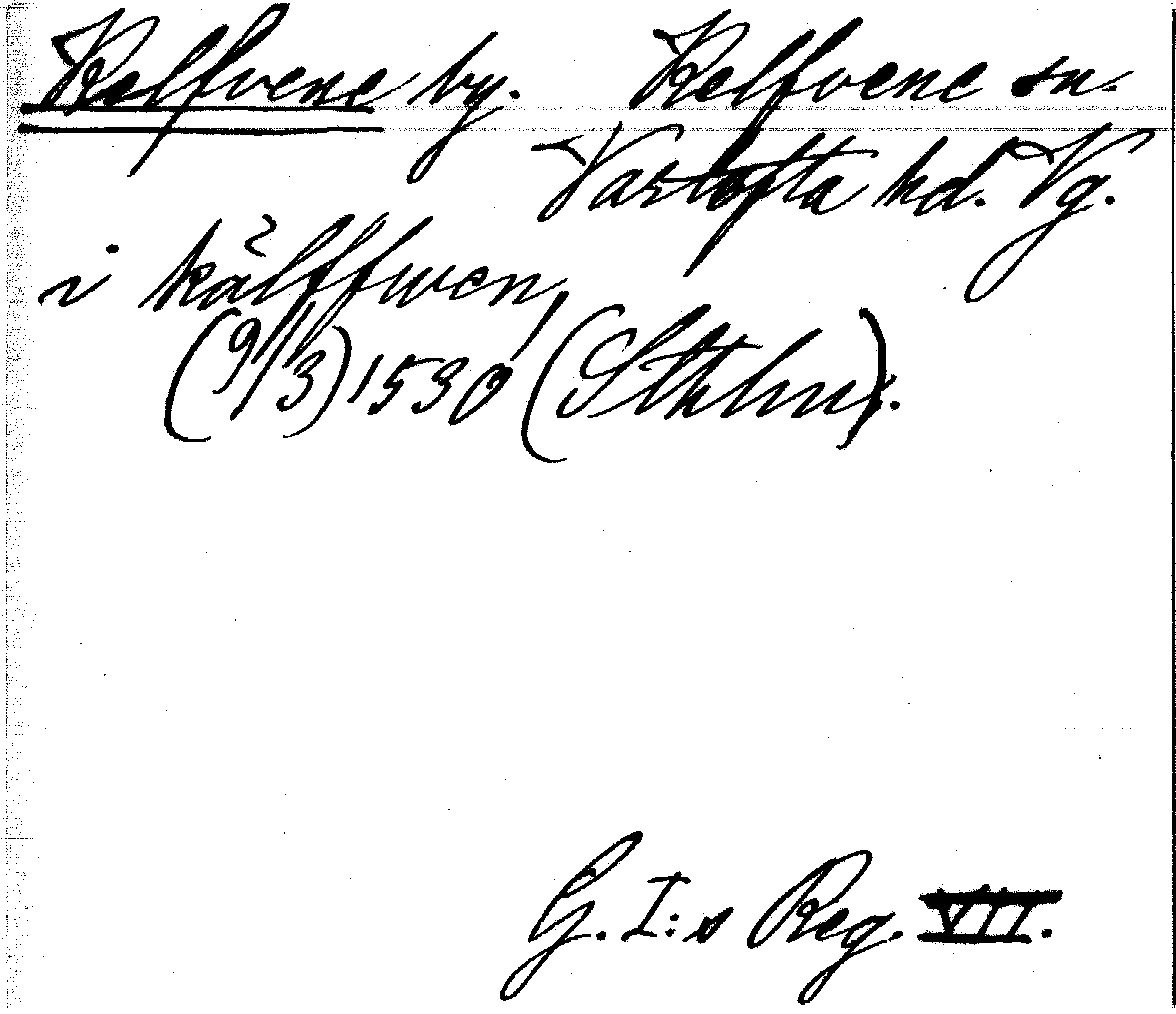 Kelfvene by. Kelfvene sn.
Vartofta hd. Vg.
i kälffwen,
(9/3) 1530 (Sthlm).
G. I:s Reg. VII.